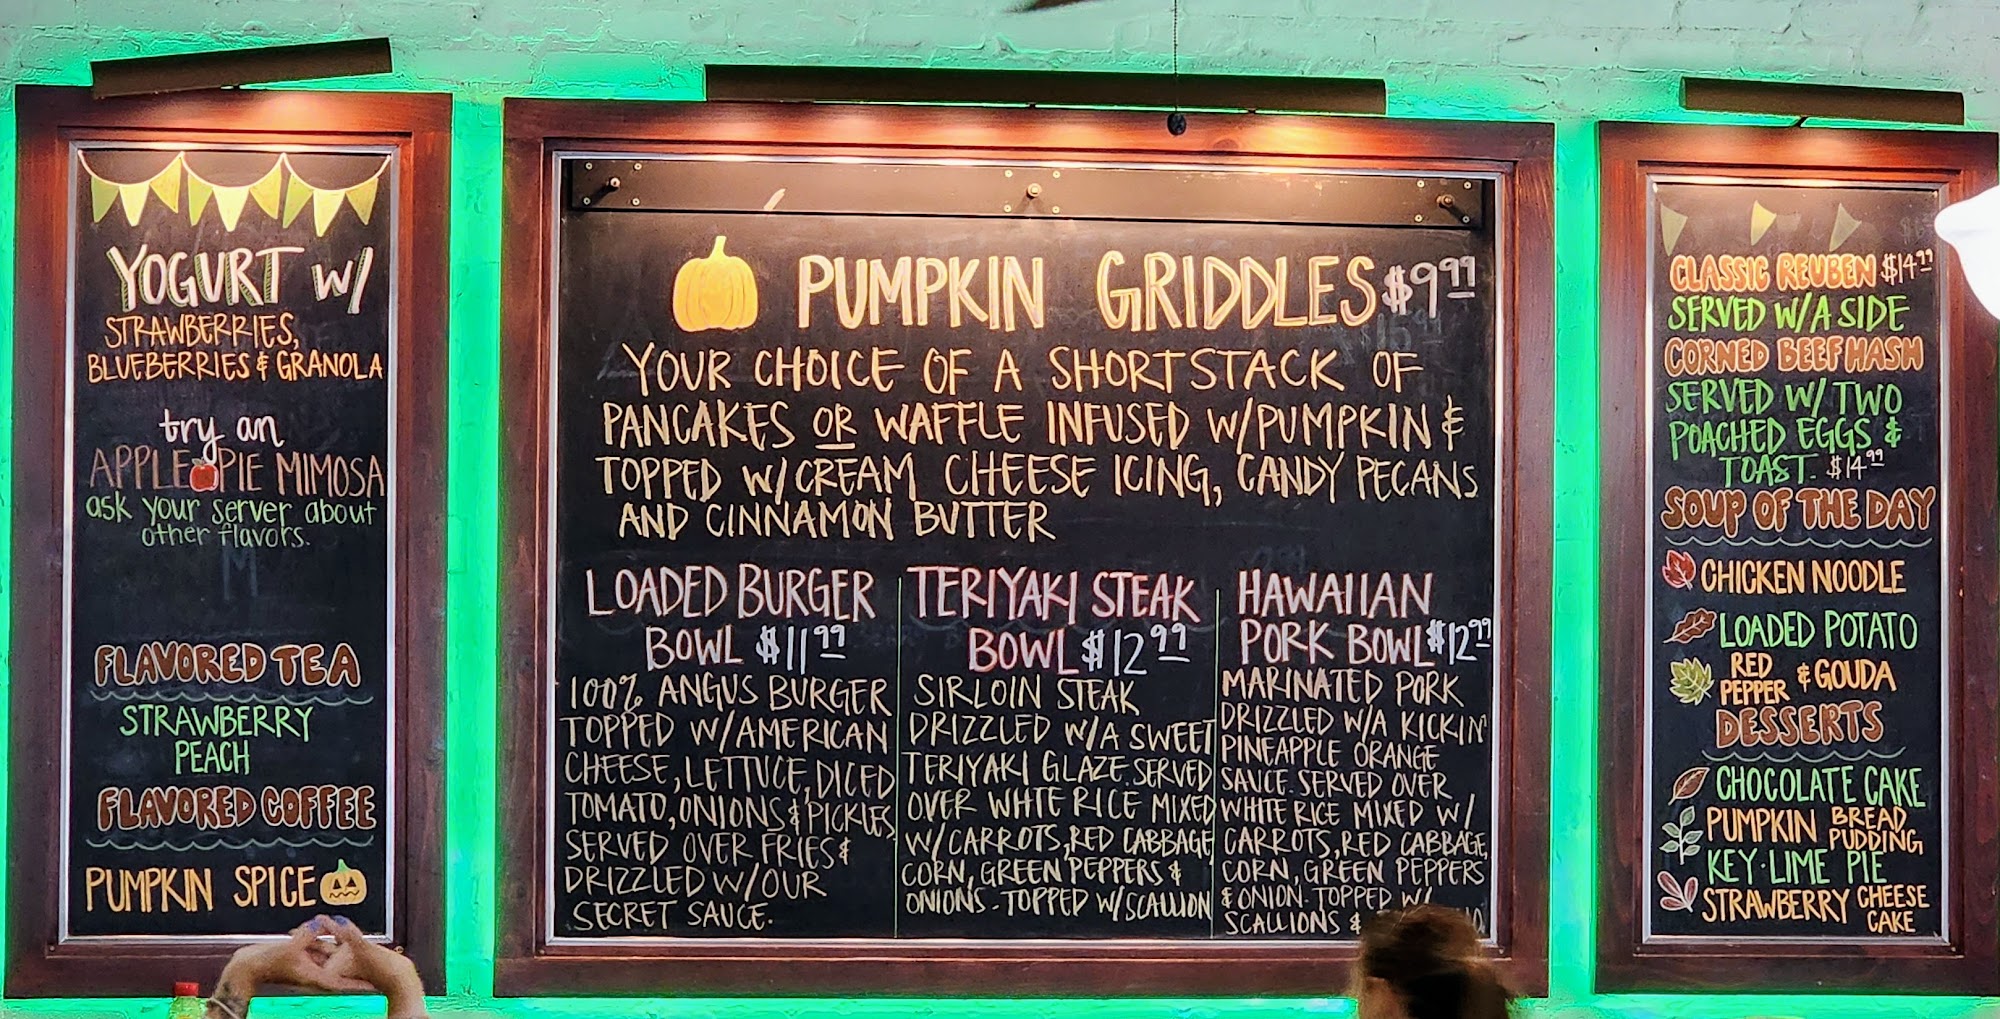 YOGURT W/
STRAWBERRIES,
BLUEBERRIES & GRANOLA
try an
APPLE PIE MIMOSA
ask your server about
other flavors.
FLAVORED TEA
STRAWBERRY
PEACH
FLAVORED COFFEE
PUMPKIN SPICE
PUMPKIN GRIDDLES $9.99
YOUR CHOICE OF A SHORTSTACK OF
PANCAKES OR WAFFLE INFUSED W/PUMPKIN &
TOPPED W/CREAM CHEESE ICING, CANDY PECANS
AND CINNAMON BUTTER
LOADED BURGER
BOWL $11.99
100% ANGUS BURGER
TOPPED W/AMERICAN
CHEESE, LETTUCE, DICED
TOMATO, ONIONS & PICKLES,
SERVED OVER FRIES &
DRIZZLED W/OUR
SECRET SAUCE.
TERIYAKI STEAK
BOWL $12.99
SIRLOIN STEAK
DRIZZLED W/A SWEET
TERIYAKI GLAZE. SERVED
OVER WHTE RICE MIXED
W/CARROTS, RED CABBAGE,
CORN, GREEN PEPPERS &
ONIONS - TOPPED W/SCALLION
HAWAIIAN
PORK BOWL $12.99
MARINATED PORK
DRIZZLED W/A KICKIN'
PINEAPPLE ORANGE
SAUCE. SERVED OVER
WHITE RICE MIXED W/
CARROTS, RED CABBAGE,
CORN, GREEN PEPPERS
& ONION - TOPPED W/
SCALLIONS &
CLASSIC REUBEN $14.99
SERVED W/A SIDE
CORNED BEEF HASH
SERVED W/ TWO
POACHED EGGS &
TOAST. $14.99
SOUP OF THE DAY
CHICKEN NOODLE
LOADED POTATO
RED PEPPER & GOUDA
DESSERTS
CHOCOLATE CAKE
PUMPKIN BREAD PUDDING
KEY-LIME PIE
STRAWBERRY CHEESE CAKE